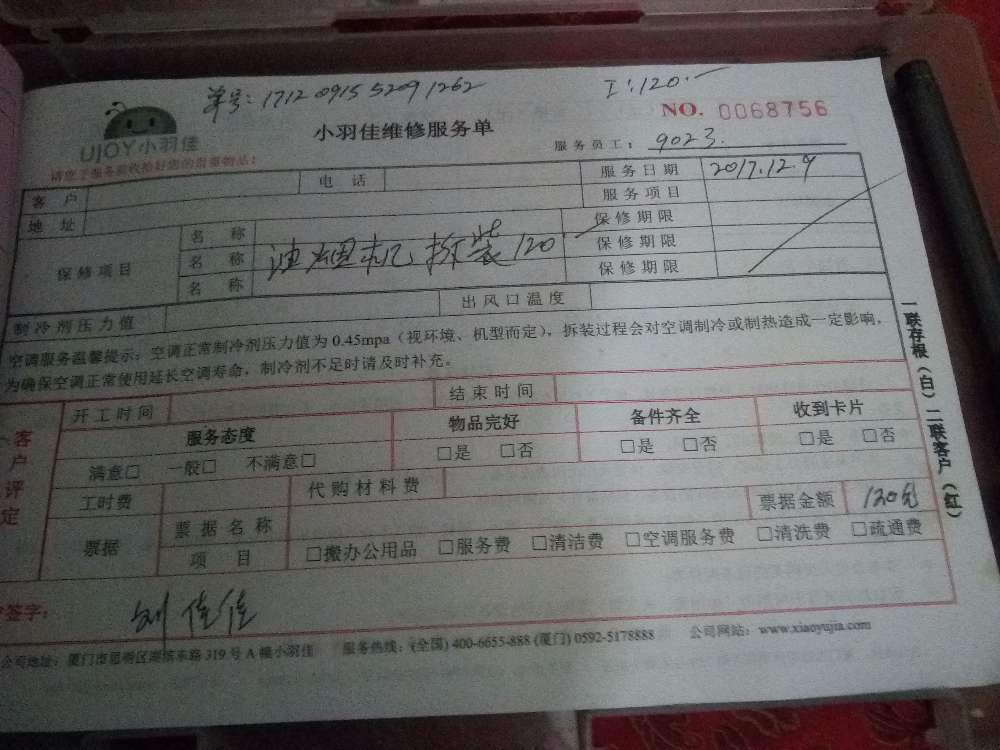 单号: 1712 0915 5209 1262
工:120.
NO. 0068756
UJOY小羽佳
小羽佳维修服务单
服务员工: 9023.
客户 电话 服务日期 2017.12.9
地址 服务项目
保修项目
名称 保修期限
名称 油烟机拆装120 保修期限
名称 保修期限
制冷剂压力值 出风口温度
空调服务温馨提示:空调正常制冷剂压力值为0.45mpa(视环境、机型而定),拆装过程会对空调制冷或制热造成一定影响,
为确保空调正常使用延长空调寿命,制冷剂不足时请及时补充。
一联存根(白)二联客户(红)
客户评定
开工时间 结束时间
服务态度 物品完好 备件齐全 收到卡片
满意□ 一般□ 不满意□ □是 □否 □是 □否 □是 □否
工时费 代购材料费
票据 票据名称 票据金额 120元
项目 □搬办公用品 □服务费 □清洁费 □空调服务费 □清洗费 □疏通费
签字: 刘佳佳
公司地址:厦门市思明区湖滨东路319号A幢小羽佳 服务热线:(全国)400-6655-888 (厦门)0592-5178888 公司网站:www.xiaoyujia.com